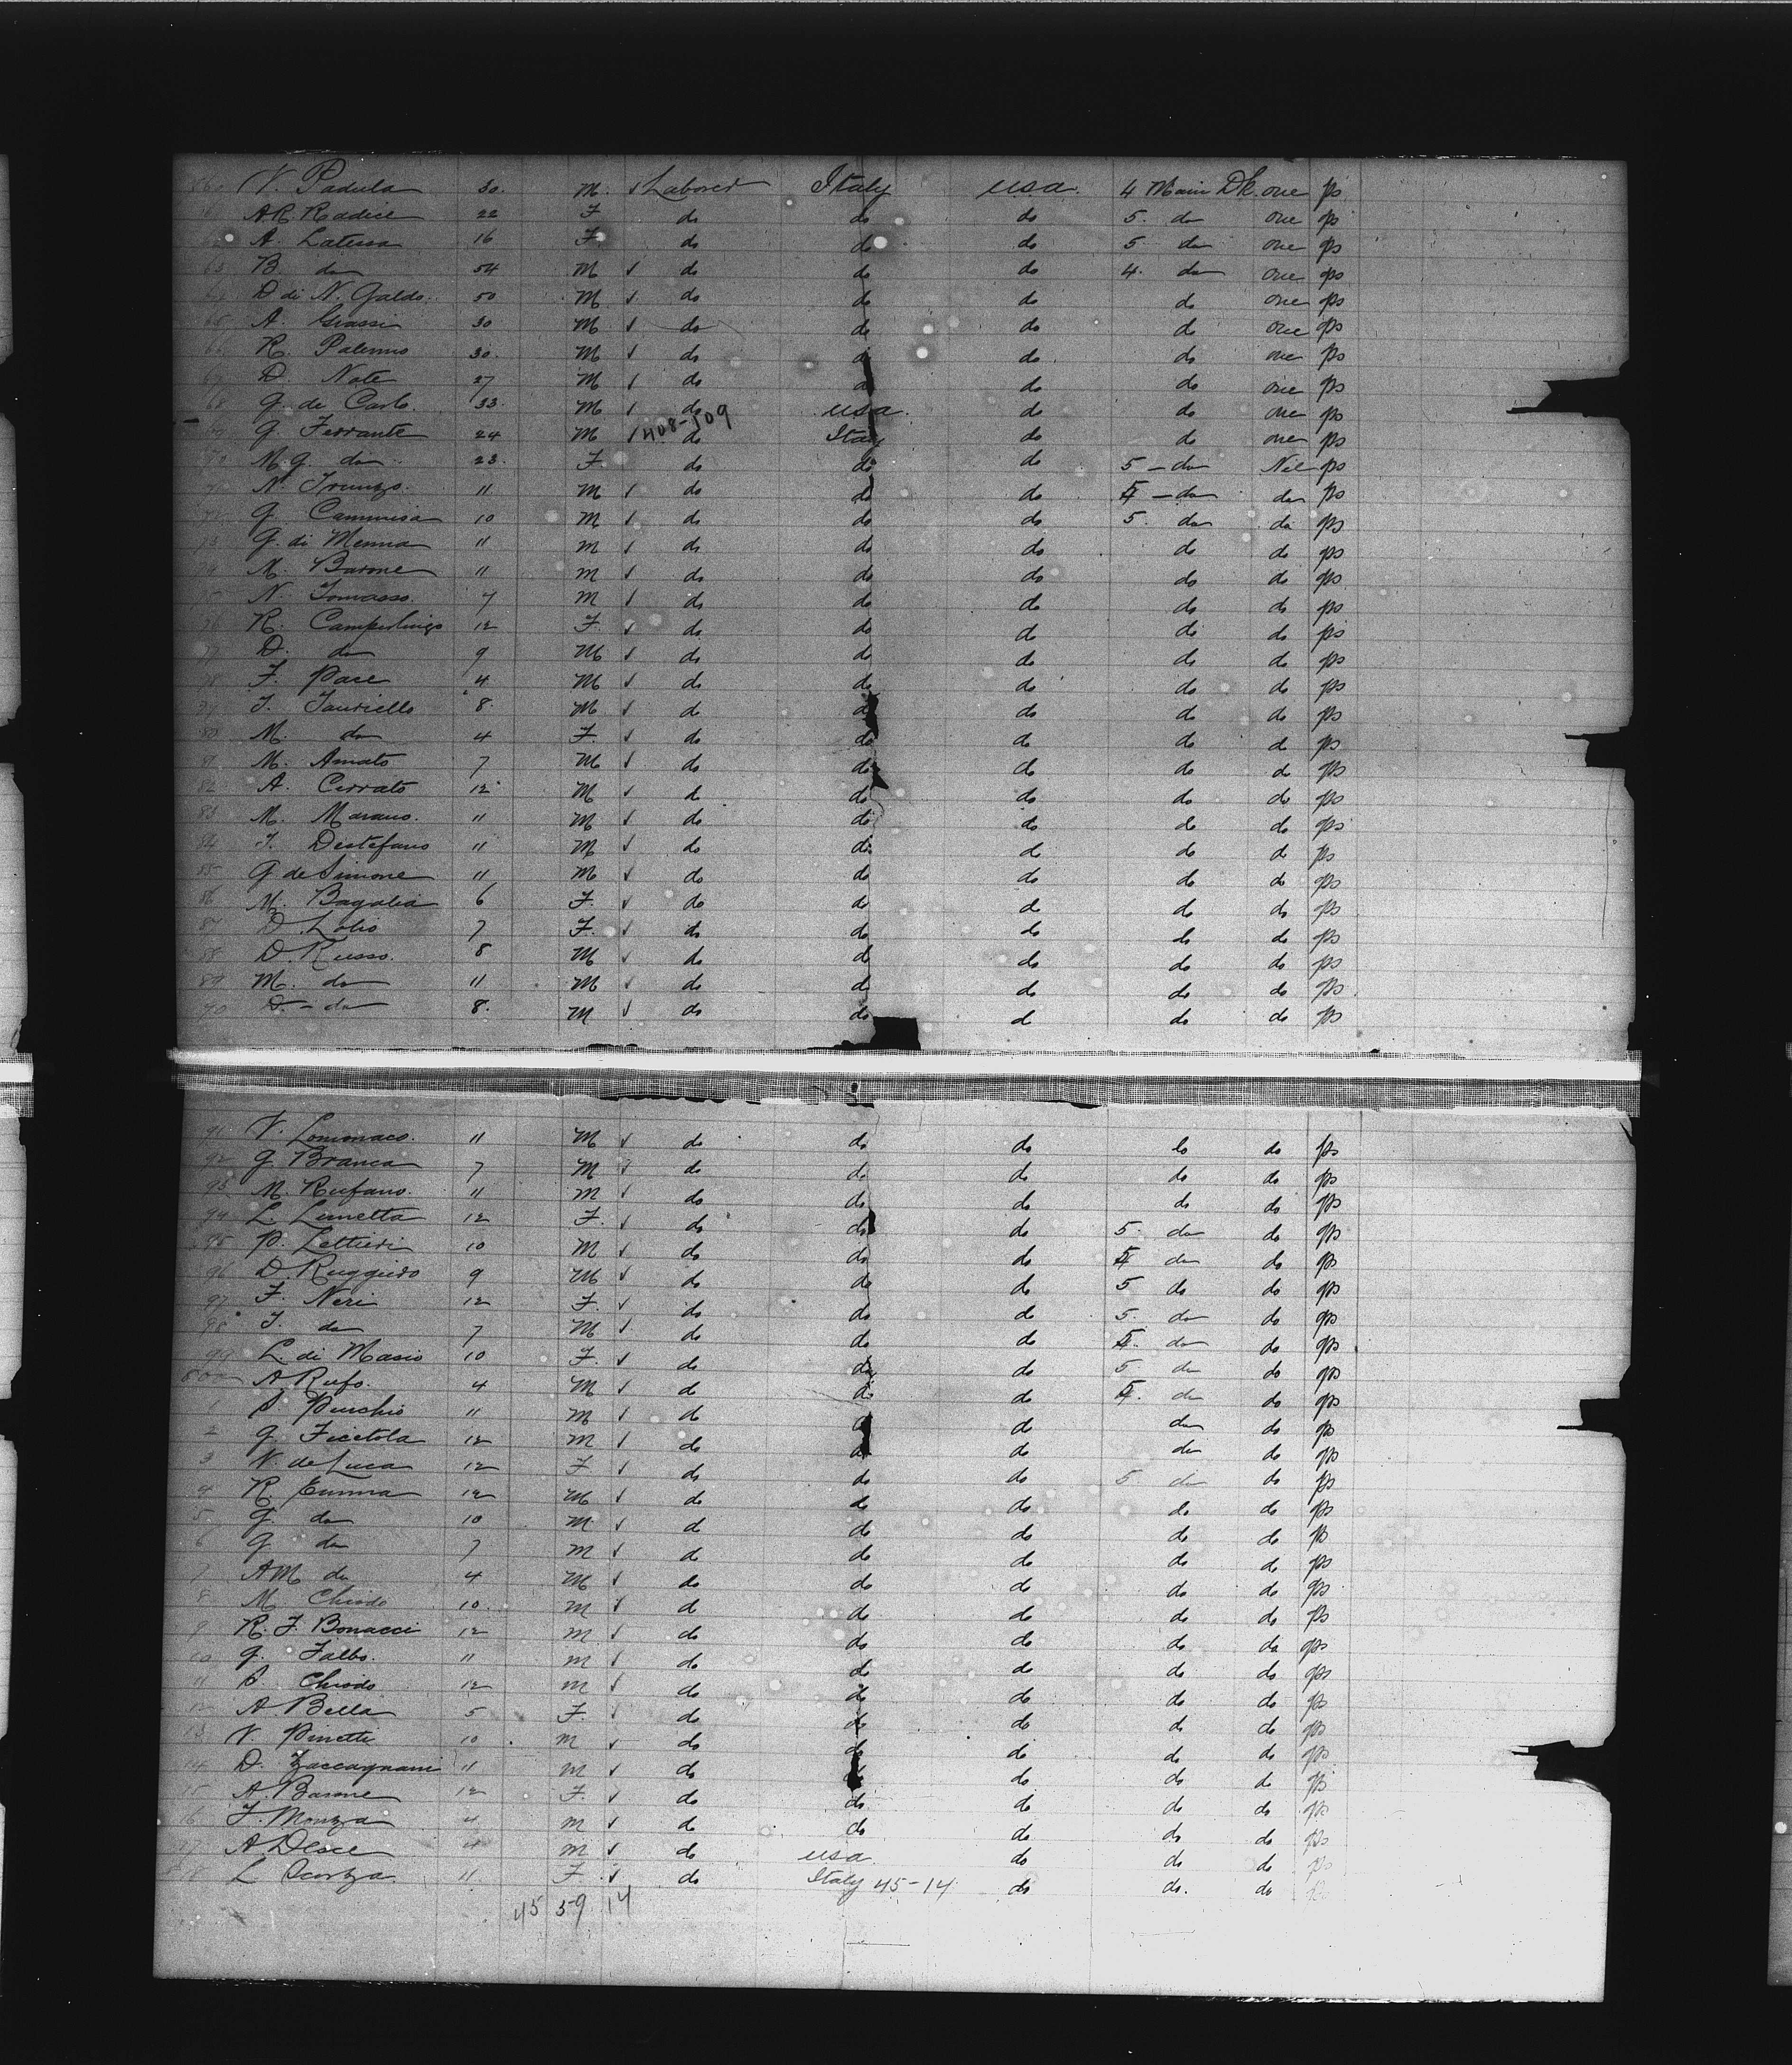 860 V. Padula 30. M. ✓ Laborer Italy usa. 4 Main Dk. one ps
61 A.R. Radice 22 F do do do 5. do one ps
62 A. Laterra 16 F do do do 5 do one ps
63 B. do 54 M ✓ do do do 4. do one ps
64 D di N. Galdo. 50 M ✓ do do do do one ps
65 A. Grassi 30 M ✓ do do do do one ps
66 R. Palermo 30. M ✓ do do do do one ps
67 D. Note 27 M ✓ do do do do one ps
68 G. de Carlo. 33. M ✓ do usa. do do one ps
408-109
69 G. Ferrante 24 M ✓ do Italy do do one ps
70 M.G. do 23. F. do do do 5 - do Nil ps
71 N. 11 M ✓ do do do 5 - do do ps
72 G. Cammisa 10 M ✓ do do do 5. do do ps
73 G. di Menna 11 M ✓ do do do do do ps
74 M. Barone 11 M ✓ do do do do do ps
75 N. Tomasso. 7 M ✓ do do do do do ps
76 R. Camperlingo 12 F. ✓ do do do do do ps
77 D. do 9 M ✓ do do do do do ps
78 F. Pace 4 M ✓ do do do do do ps
79 T. Tauriello 8. M ✓ do do do do do ps
80 M. do 4 F ✓ do do do do do ps
81 M. Amato 7 M ✓ do do do do do ps
82 A. Cerrato 12 M ✓ do do do do do ps
83 M. Marano. 11 M ✓ do do do do do ps
84 F. Destefano 11 M ✓ do do do do do ps
85 G de Simone 11 M ✓ do do do do do ps
86 M. Bagalia 6 F. ✓ do do do do do ps
87 D. Lolio 7 F. ✓ do do do do do ps
88 D. Russo. 8 M ✓ do do do do do ps
89 M. do 11 M ✓ do do do do do ps
90 D. - do 8. M ✓ do do do do do ps
91 V. Lomonaco. 11 M ✓ do do do do do ps
92 G Branca 7 M ✓ do do do do do ps
93 M. Rufano. 11 M ✓ do do do do do ps
94 L. Lunetta 12 F. ✓ do do do 5. do do ps
95 P. Lettieri 10 M ✓ do do do 4 do do ps
96 D. Ruggiero 9 M ✓ do do do 5 do do ps
97 F. Neri 12 F. ✓ do do do 5. do do ps
98 F. do 7 M ✓ do do do 4. do do ps
99 L. di Masio 10 F. ✓ do do do 5 do do ps
800 A Rufo. 4 M ✓ do do do 4. do do ps
1 S. Pinchio 11 M ✓ do do do do do ps
2 G. Ficetola 12 M ✓ do do do do do ps
3 N. de Luca 12 F ✓ do do do 5 do do ps
4 R. Cumma 12 M ✓ do do do do do ps
5 G. do 10 M ✓ do do do do do ps
6 G do 7 M ✓ do do do do do ps
7 A M do 4 M ✓ do do do do do ps
8 M. Chiodo 10. M ✓ do do do do do ps
9 R. F. Bonacci 12 M ✓ do do do do do ps
10 G. Falbo. 11 M ✓ do do do do do ps
11 S. Chiodo 12 M ✓ do do do do do ps
12 A Bella 5 F. ✓ do do do do do ps
13 V. Pinetti 10 M ✓ do do do do do ps
14 D. Zaccagnani 11 M ✓ do do do do do ps
15 A. Barone 12 F. ✓ do do do do do ps
16 F. Monza 4 M ✓ do do do do do ps
17 A. Desce 4 M ✓ do usa. do do do ps
818 L Scorza. 11. F. ✓ do Italy 45-14 do do. do ps
45 59 14